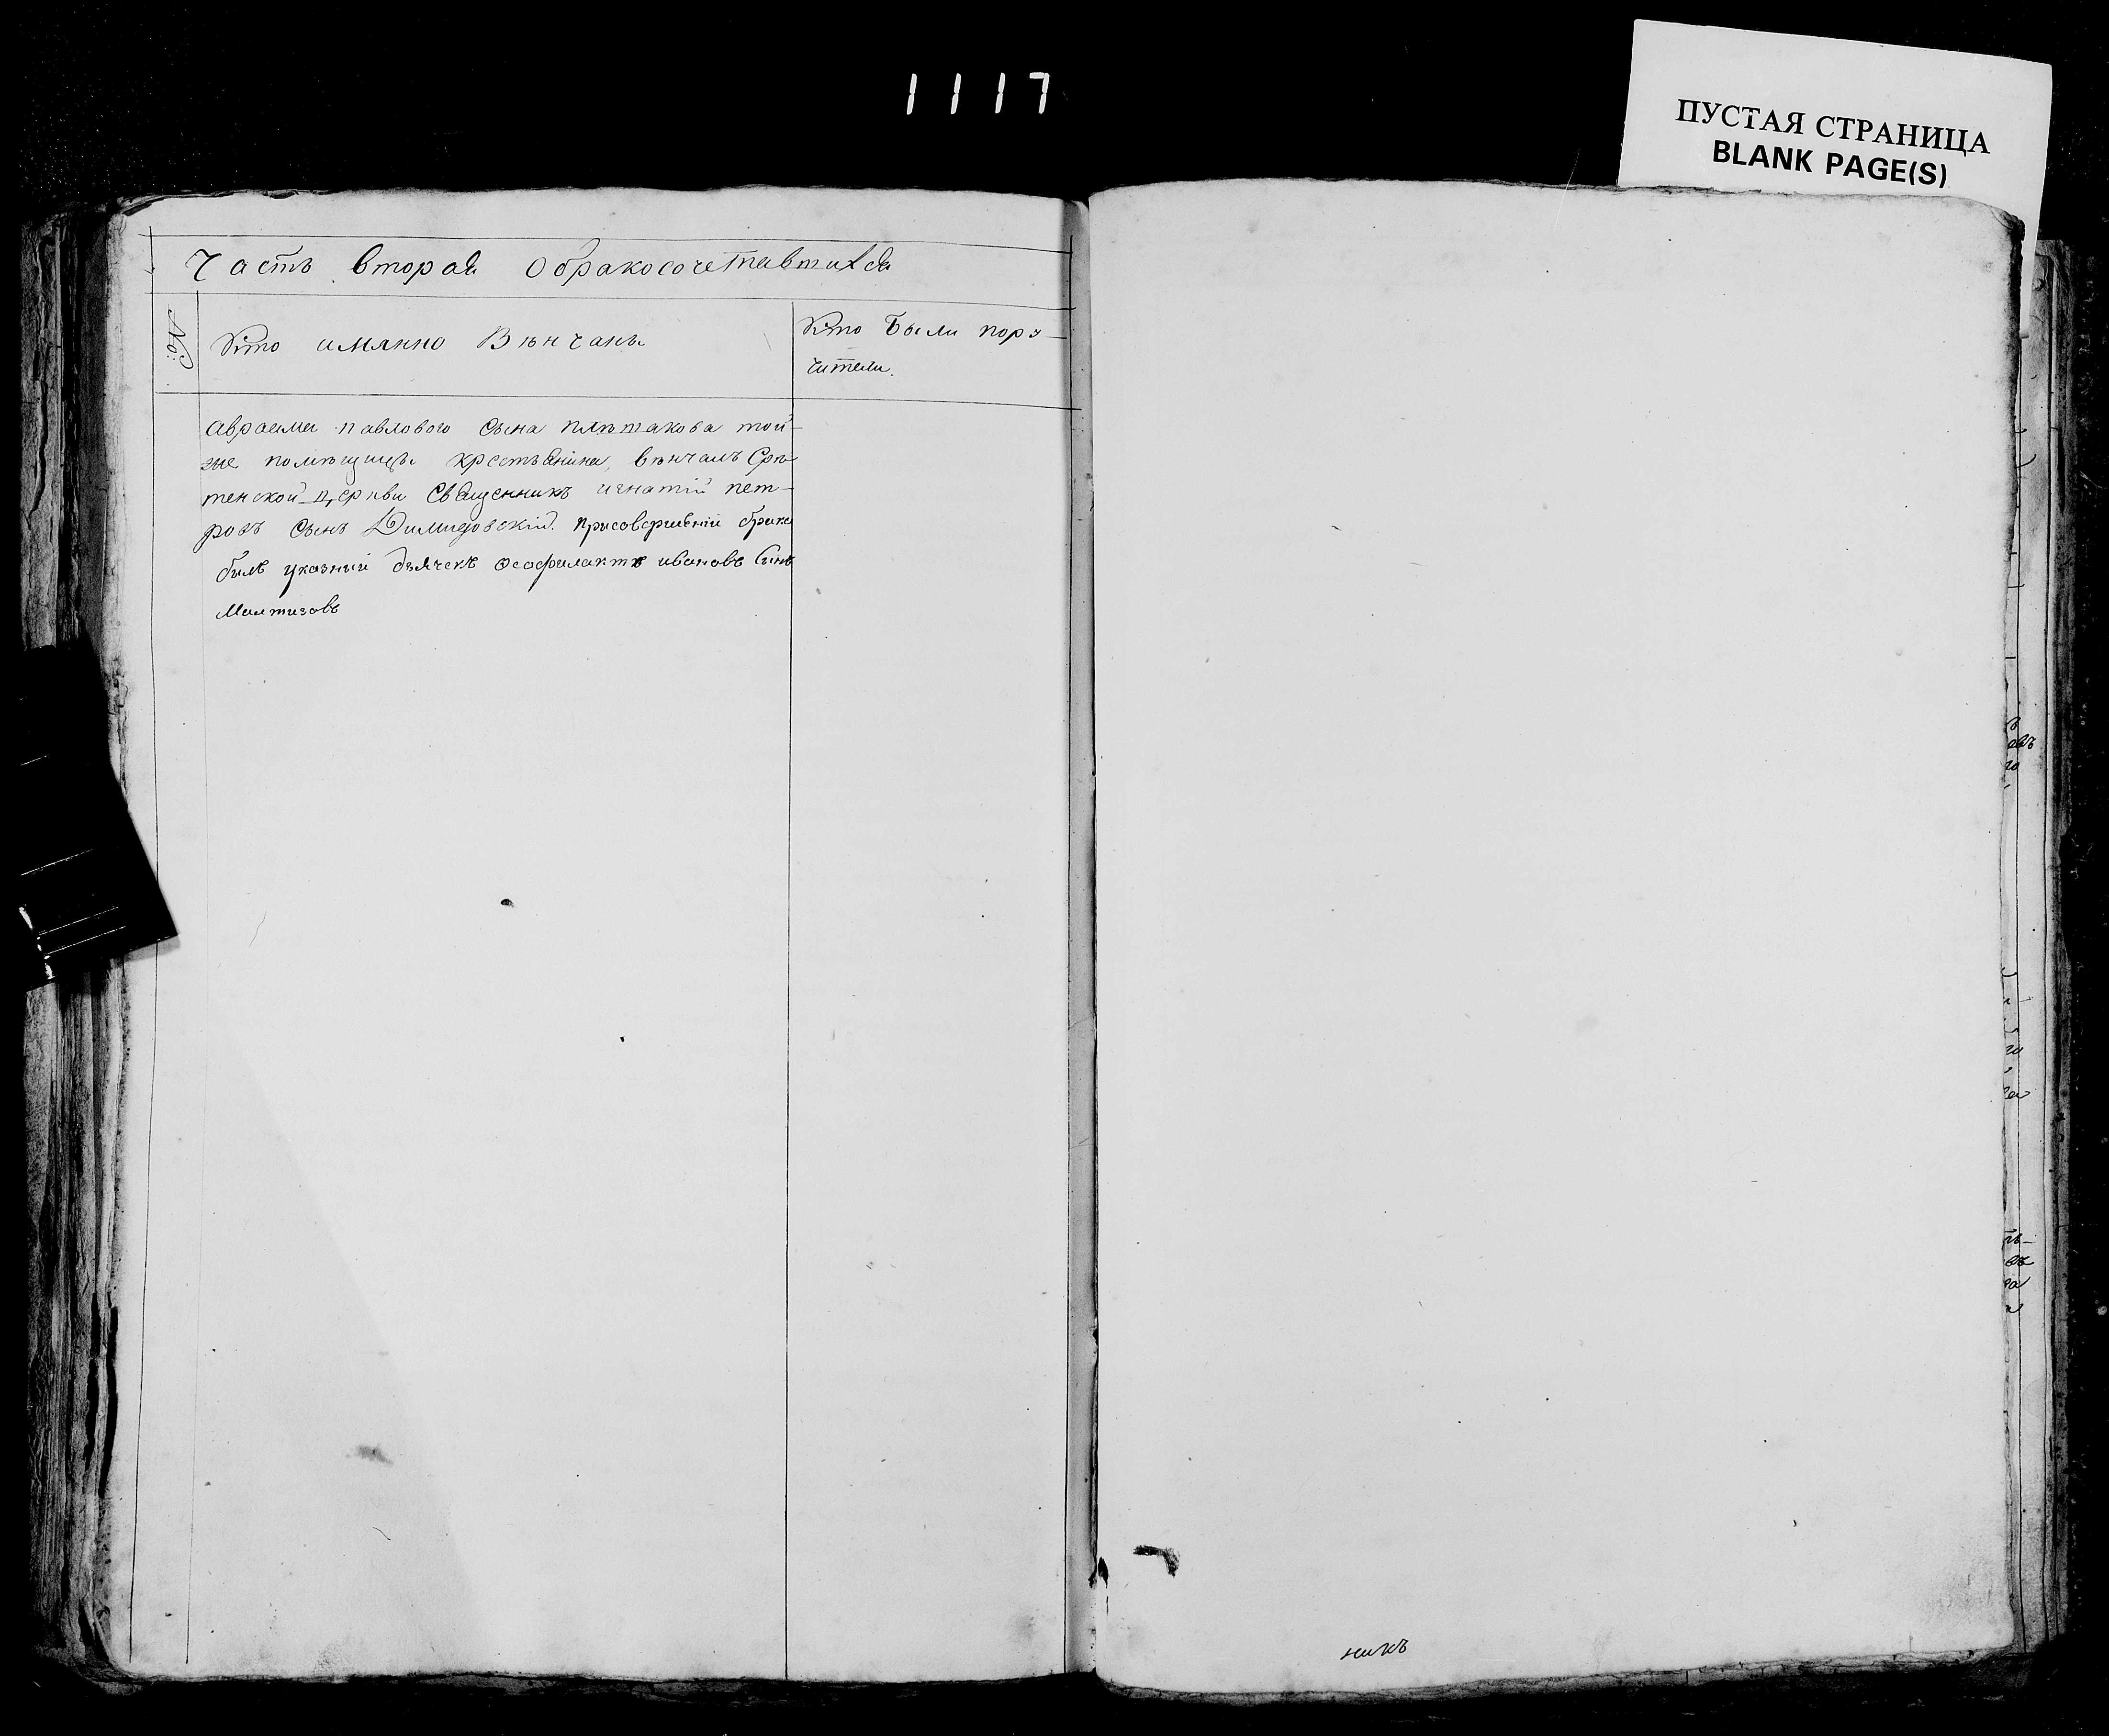 1117
ПУСТАЯ СТРАНИЦА
BLANK PAGE(S)
Часть вторая Обракосочетавшихся
No:
Кто имянно Вѣнчанъ
Кто Были пору-
чители.
Авраама павлового Сына плѣшакова той-
же помѣщицы крестьянина, вѣнчалъ Срѣ-
тенской Церкви Священникъ игнатій пет-
ровъ Сынъ Димидовскій. присовершеніи брака
билъ указный дьячекъ Ѳеофилактъ ивановъ Синъ
никъ